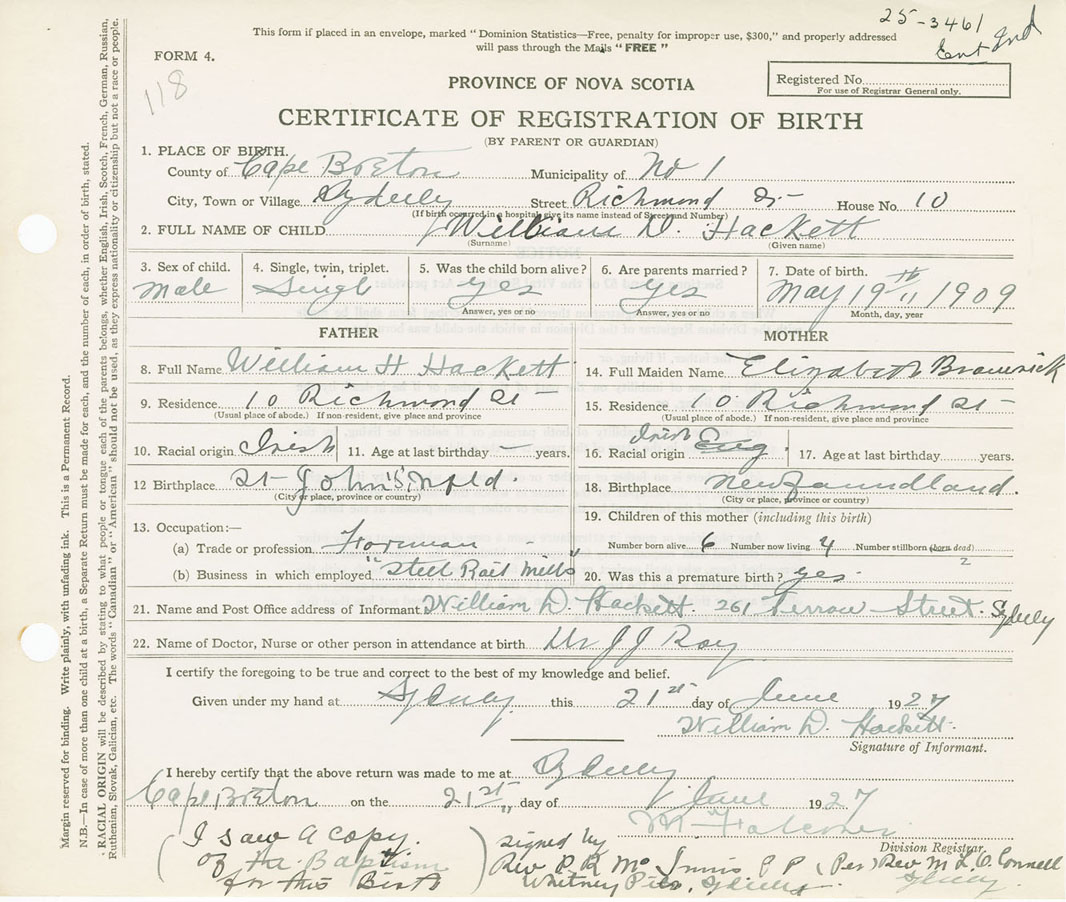 25-3461
This form if placed in an envelope, marked "Dominion Statistics—Free, penalty for improper use, $300," and properly addressed
will pass through the Mails "FREE"
FORM 4.
118
PROVINCE OF NOVA SCOTIA
Registered No.
For use of Registrar General only.
CERTIFICATE OF REGISTRATION OF BIRTH
(BY PARENT OR GUARDIAN)
1. PLACE OF BIRTH.
County of Cape Breton Municipality of No 1
City, Town or Village Sydney Street Richmond St- House No. 10
(If birth occurred in a hospital, give its name instead of Street and Number)
2. FULL NAME OF CHILD William D. Hackett
(Surname) (Given name)
3. Sex of child. 4. Single, twin, triplet. 5. Was the child born alive? 6. Are parents married? 7. Date of birth.
Male Singl yes yes May 19th 1909
Answer, yes or no Answer, yes or no Month, day, year
FATHER MOTHER
8. Full Name William H Hackett 14. Full Maiden Name Elizabeth
9. Residence 10 Richmond St- 15. Residence 10 Richmond St-
(Usual place of abode.) If non-resident, give place and province (Usual place of abode.) If non-resident, give place and province
10. Racial origin Irish 11. Age at last birthday — years. 16. Racial origin Irish Eng 17. Age at last birthday years.
12 Birthplace St John's Nfld. 18. Birthplace Newfoundland.
(City or place, province or country) (City or place, province or country)
13. Occupation:— 19. Children of this mother (including this birth)
(a) Trade or profession Forman - Number born alive 6 Number now living 4 Number stillborn (born dead) 2
(b) Business in which employed "Steel Rail Mills" 20. Was this a premature birth? yes.
21. Name and Post Office address of Informant William D. Hackett. 261 Street. Sydney
22. Name of Doctor, Nurse or other person in attendance at birth Dr J J Roy
I certify the foregoing to be true and correct to the best of my knowledge and belief.
Given under my hand at Sydney this 21st day of June 1927
William D. Hackett.
Signature of Informant.
I hereby certify that the above return was made to me at Sydney
Cape Breton on the 21st day of June 1927
M Falconer
Division Registrar.
(I saw a copy
of the Baptism
for this Birth)
signed by
Rev R R Mc Innis P P (Per) Rev M L O Connell
Whitney Pier, Sydney Sydney.
Margin reserved for binding. Write plainly, with unfading ink. This is a Permanent Record.
N.B.—In case of more than one child at a birth, a Separate Return must be made for each, and the number of each, in order of birth, stated.
RACIAL ORIGIN will be described by stating to what people or tongue each of the parents belongs, whether English, Irish, Scotch, French, German, Russian,
Ruthenian, Slovak, Galician, etc. The words "Canadian" or "American" should not be used, as they express nationality or citizenship but not a race or people.